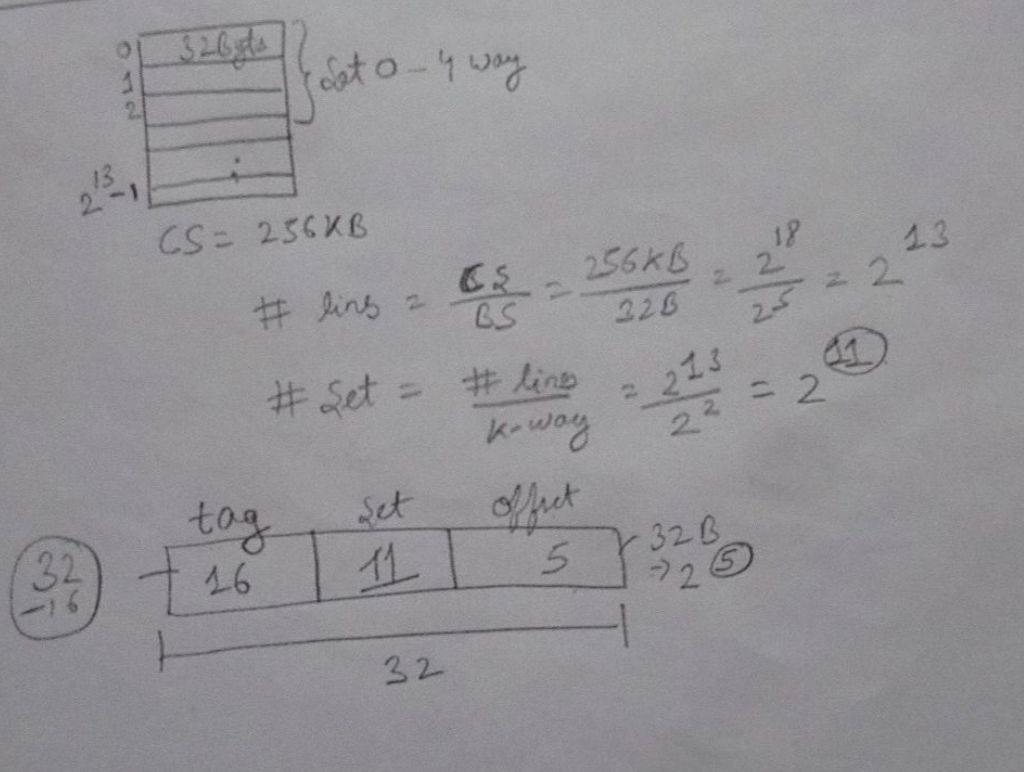 0 32Bytes
1
2
Set 0 - 4 way
2^13 - 1
CS = 256KB
# lins = CS/BS = 256KB/32B = 2^18/2^5 = 2^13
# Set = # lins/K-way = 2^13/2^2 = 2^11
tag Set offset
16 11 5
32B
→ 2^5
32
-16
32